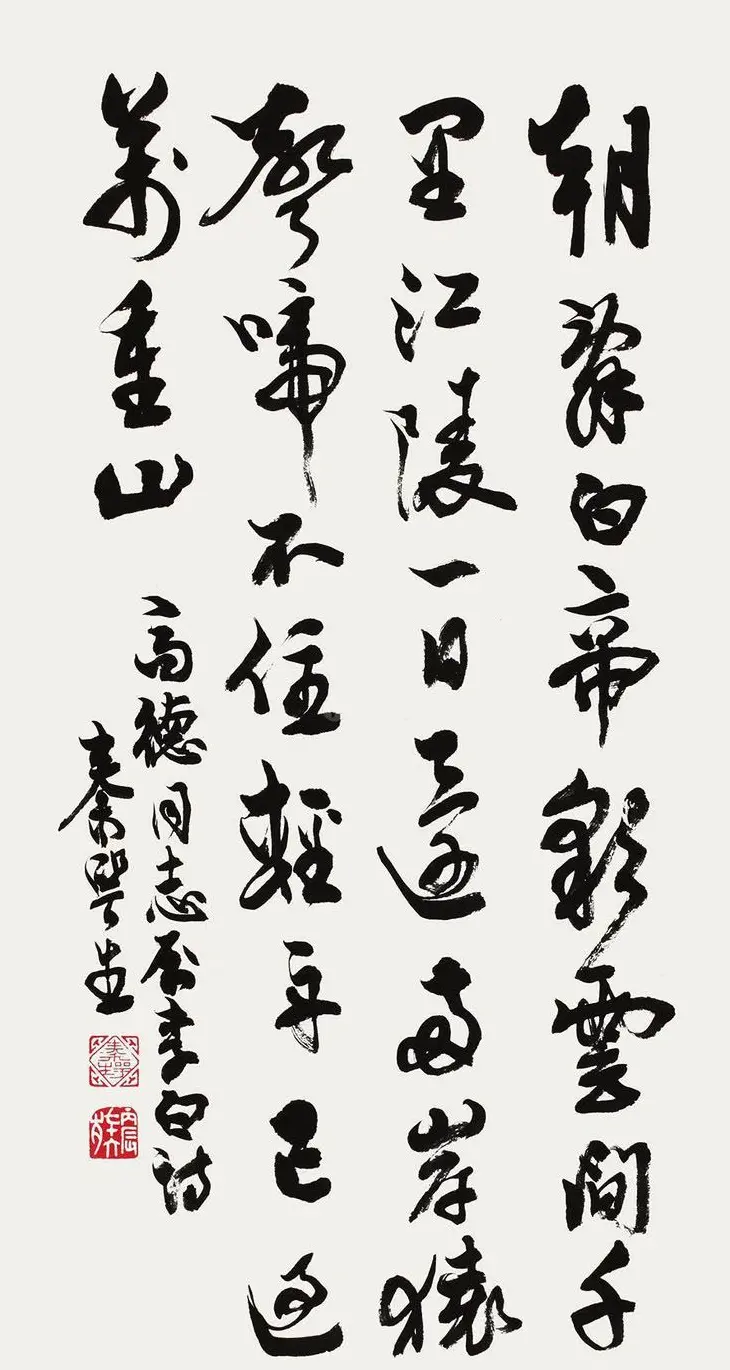 朝辭白帝彩雲間千
里江陵一日還兩岸猿
聲啼不住輕舟已過
萬重山
高德同志属李白詩
秦咢生